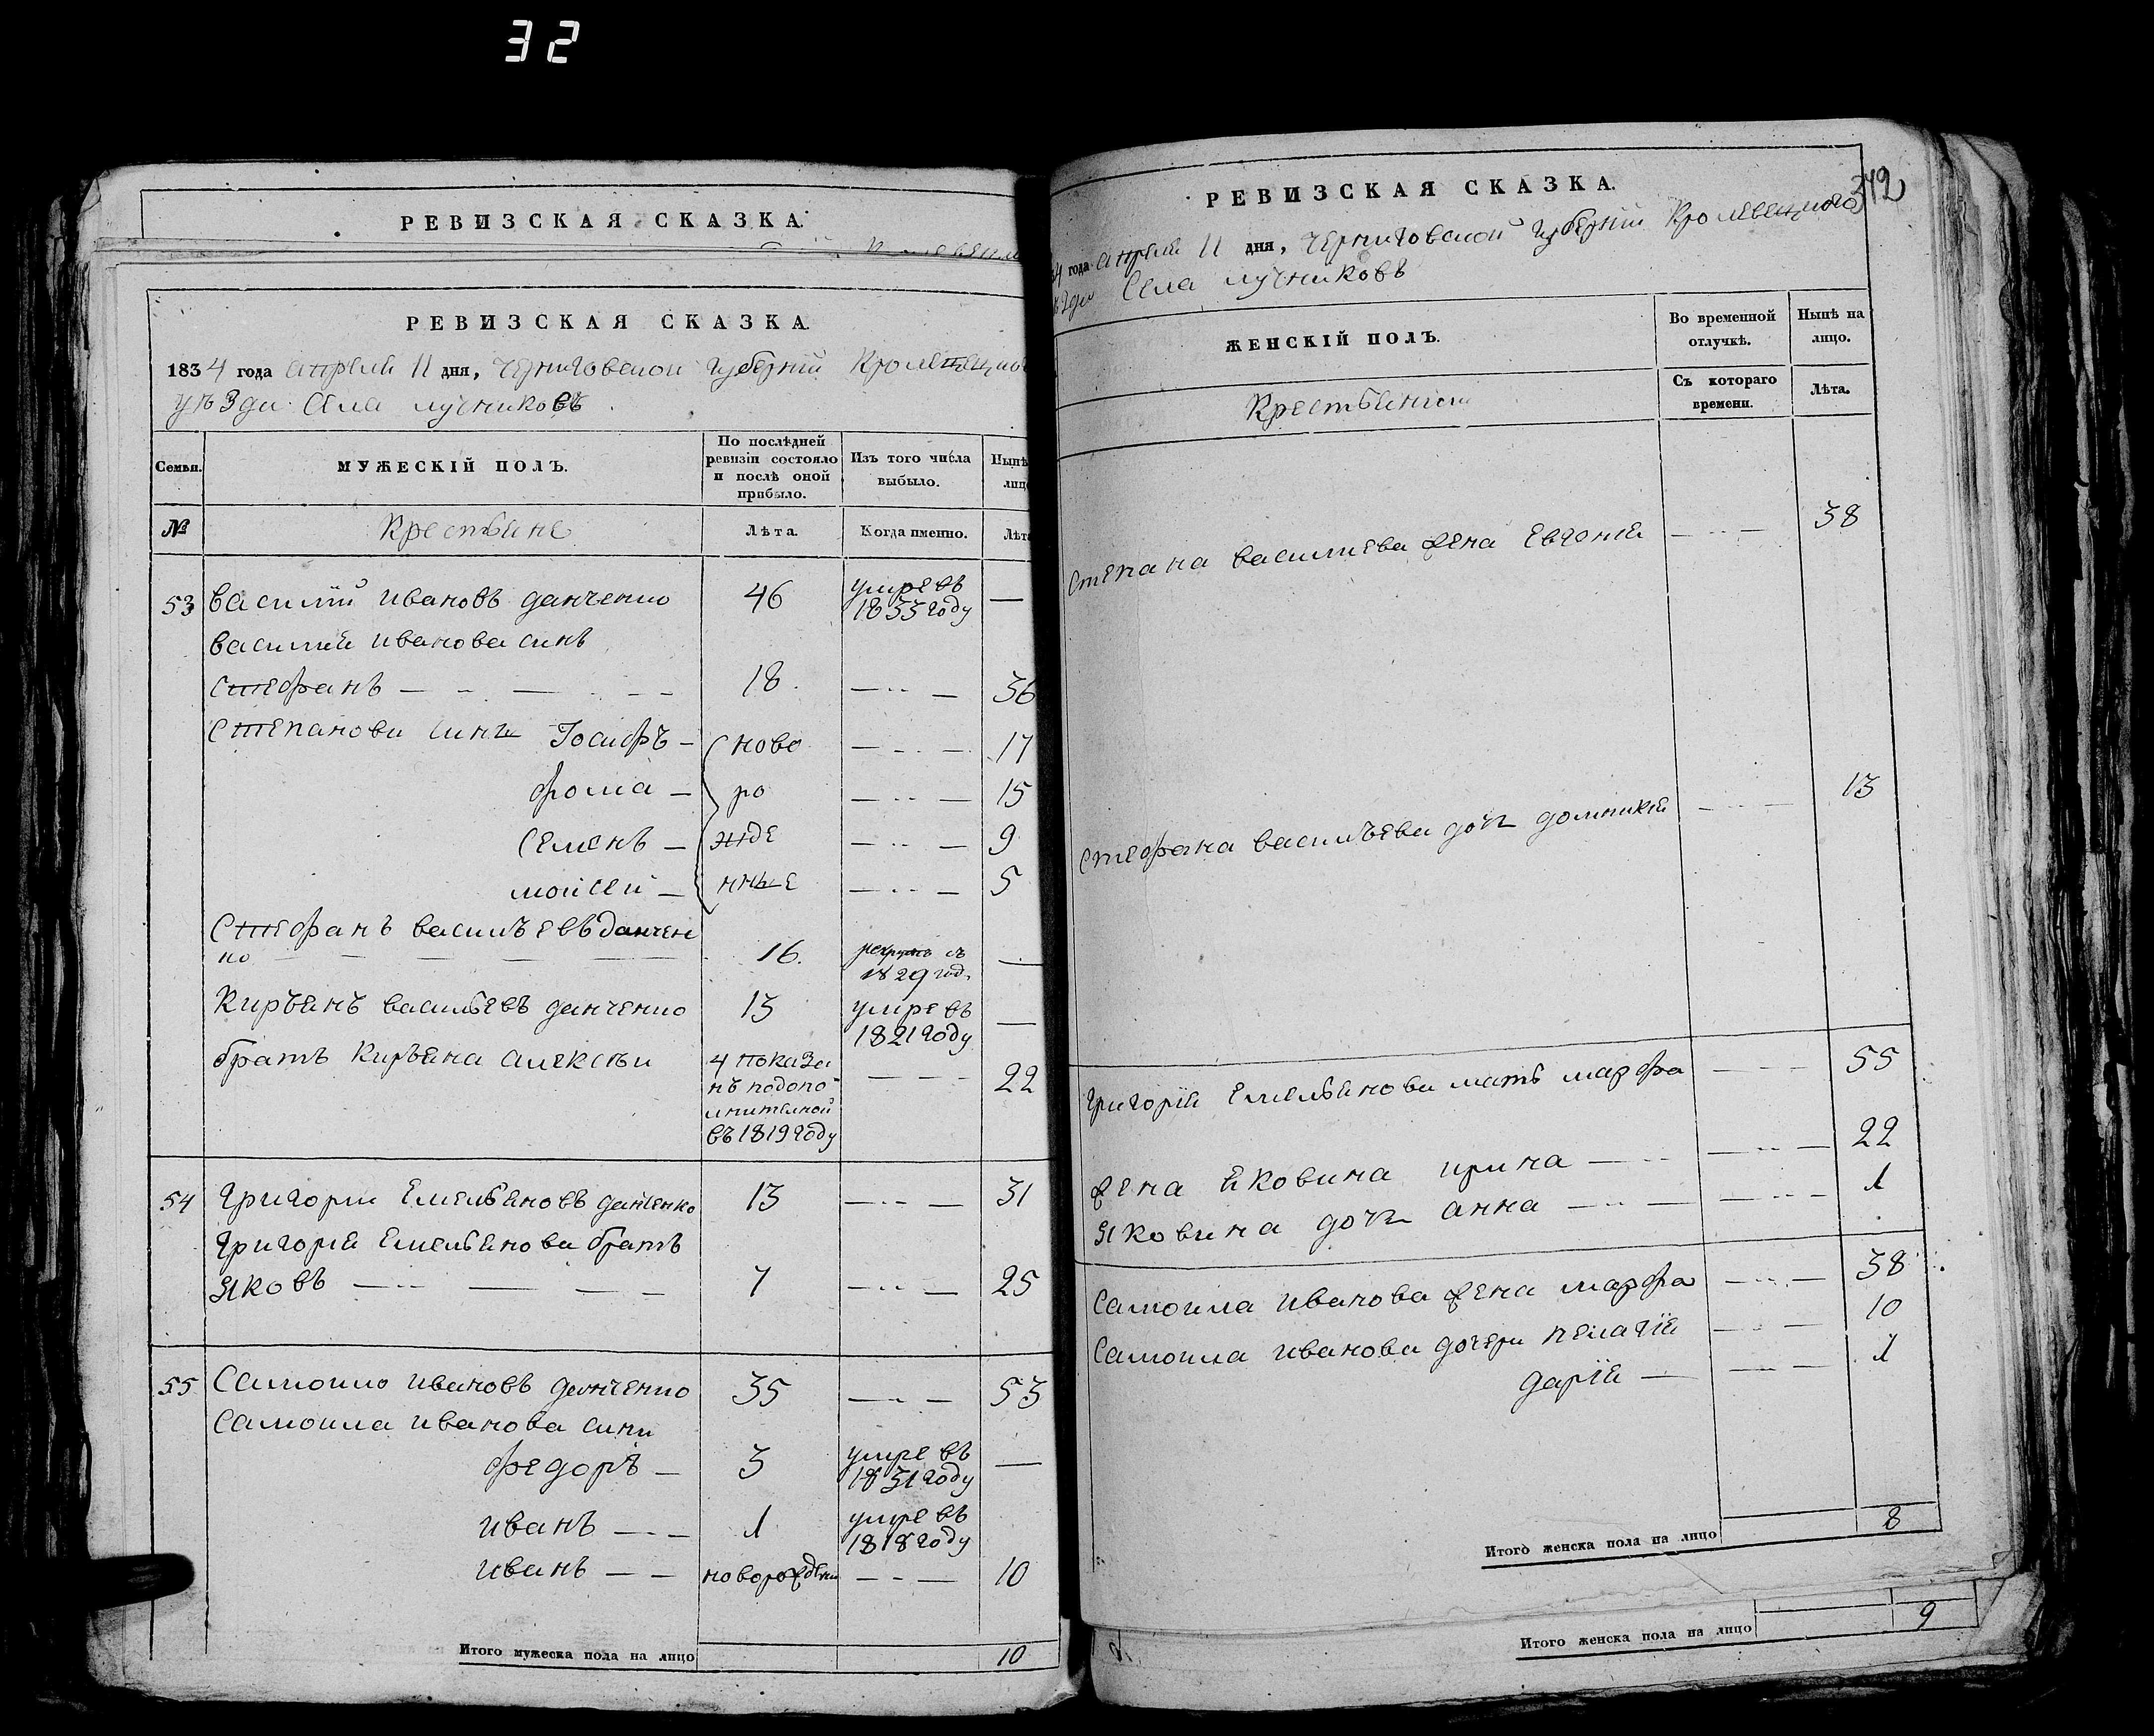 32
РЕВИЗСКАЯ СКАЗКА.
РЕВИЗСКАЯ СКАЗКА.
1834 года апреля 11 дня, черниговской губернии Кролевецко
уѣзда Села лучниковъ
Семьи.
МУЖЕСКІЙ ПОЛЪ.
По послѣдней ревизіи состояло и послѣ оной прибыло.
Изъ того числа выбыло.
Нынѣ лицо
№
Крестьяне
Лѣта.
Когда именно.
Лѣта
53 василій ивановъ данченко 46 умре въ 1833 году —
василия иванова синъ
стефанъ — 18. — 36
степанови сини Іосифъ — ново — 17
фома — ро — 15
семенъ — жде — 9
мойсей — нные — 5
стефанъ василъевъ данчен
ко 16. рекрутъ съ 1829 год. —
киръянъ васильевъ данченко 13 умре въ 1821 году —
братъ киръяна алексѣи 4 показа
нъ подопо
лнителной
въ 1819 году — 22
54 григории емельяновъ данченко 13 — 31
григория емельянови братъ
яковъ — 7 — 25
55 самоило ивановъ данченко 35 — 53
самоила иванова сини
федоръ — 3 умре въ 1831 году —
иванъ — 1 умре въ 1818 году
иванъ — новорожденн — 10
Итого мужеска пола на лицо 10
342
РЕВИЗСКАЯ СКАЗКА.
4 года апреля 11 дня, черниговской губерніи Кролевецкого
ѣзда Села лучниковъ
ЖЕНСКІЙ ПОЛЪ.
Во временной отлучкѣ.
Нынѣ на лицо.
Крестьянки
Съ котораго времени.
Лѣта.
степана василиева жена евгения — 38
стефана василъева дочь домникия — 13
григорія емельянови мать марфа — 55
жена яковина ирина — 22
яковина дочь анна — 1
самоила иванова жена марфа — 38
самоила иванови дочери пелагія — 10
дарія — 1
Итого женска пола на лицо 8
Итого женска пола на лицо 9